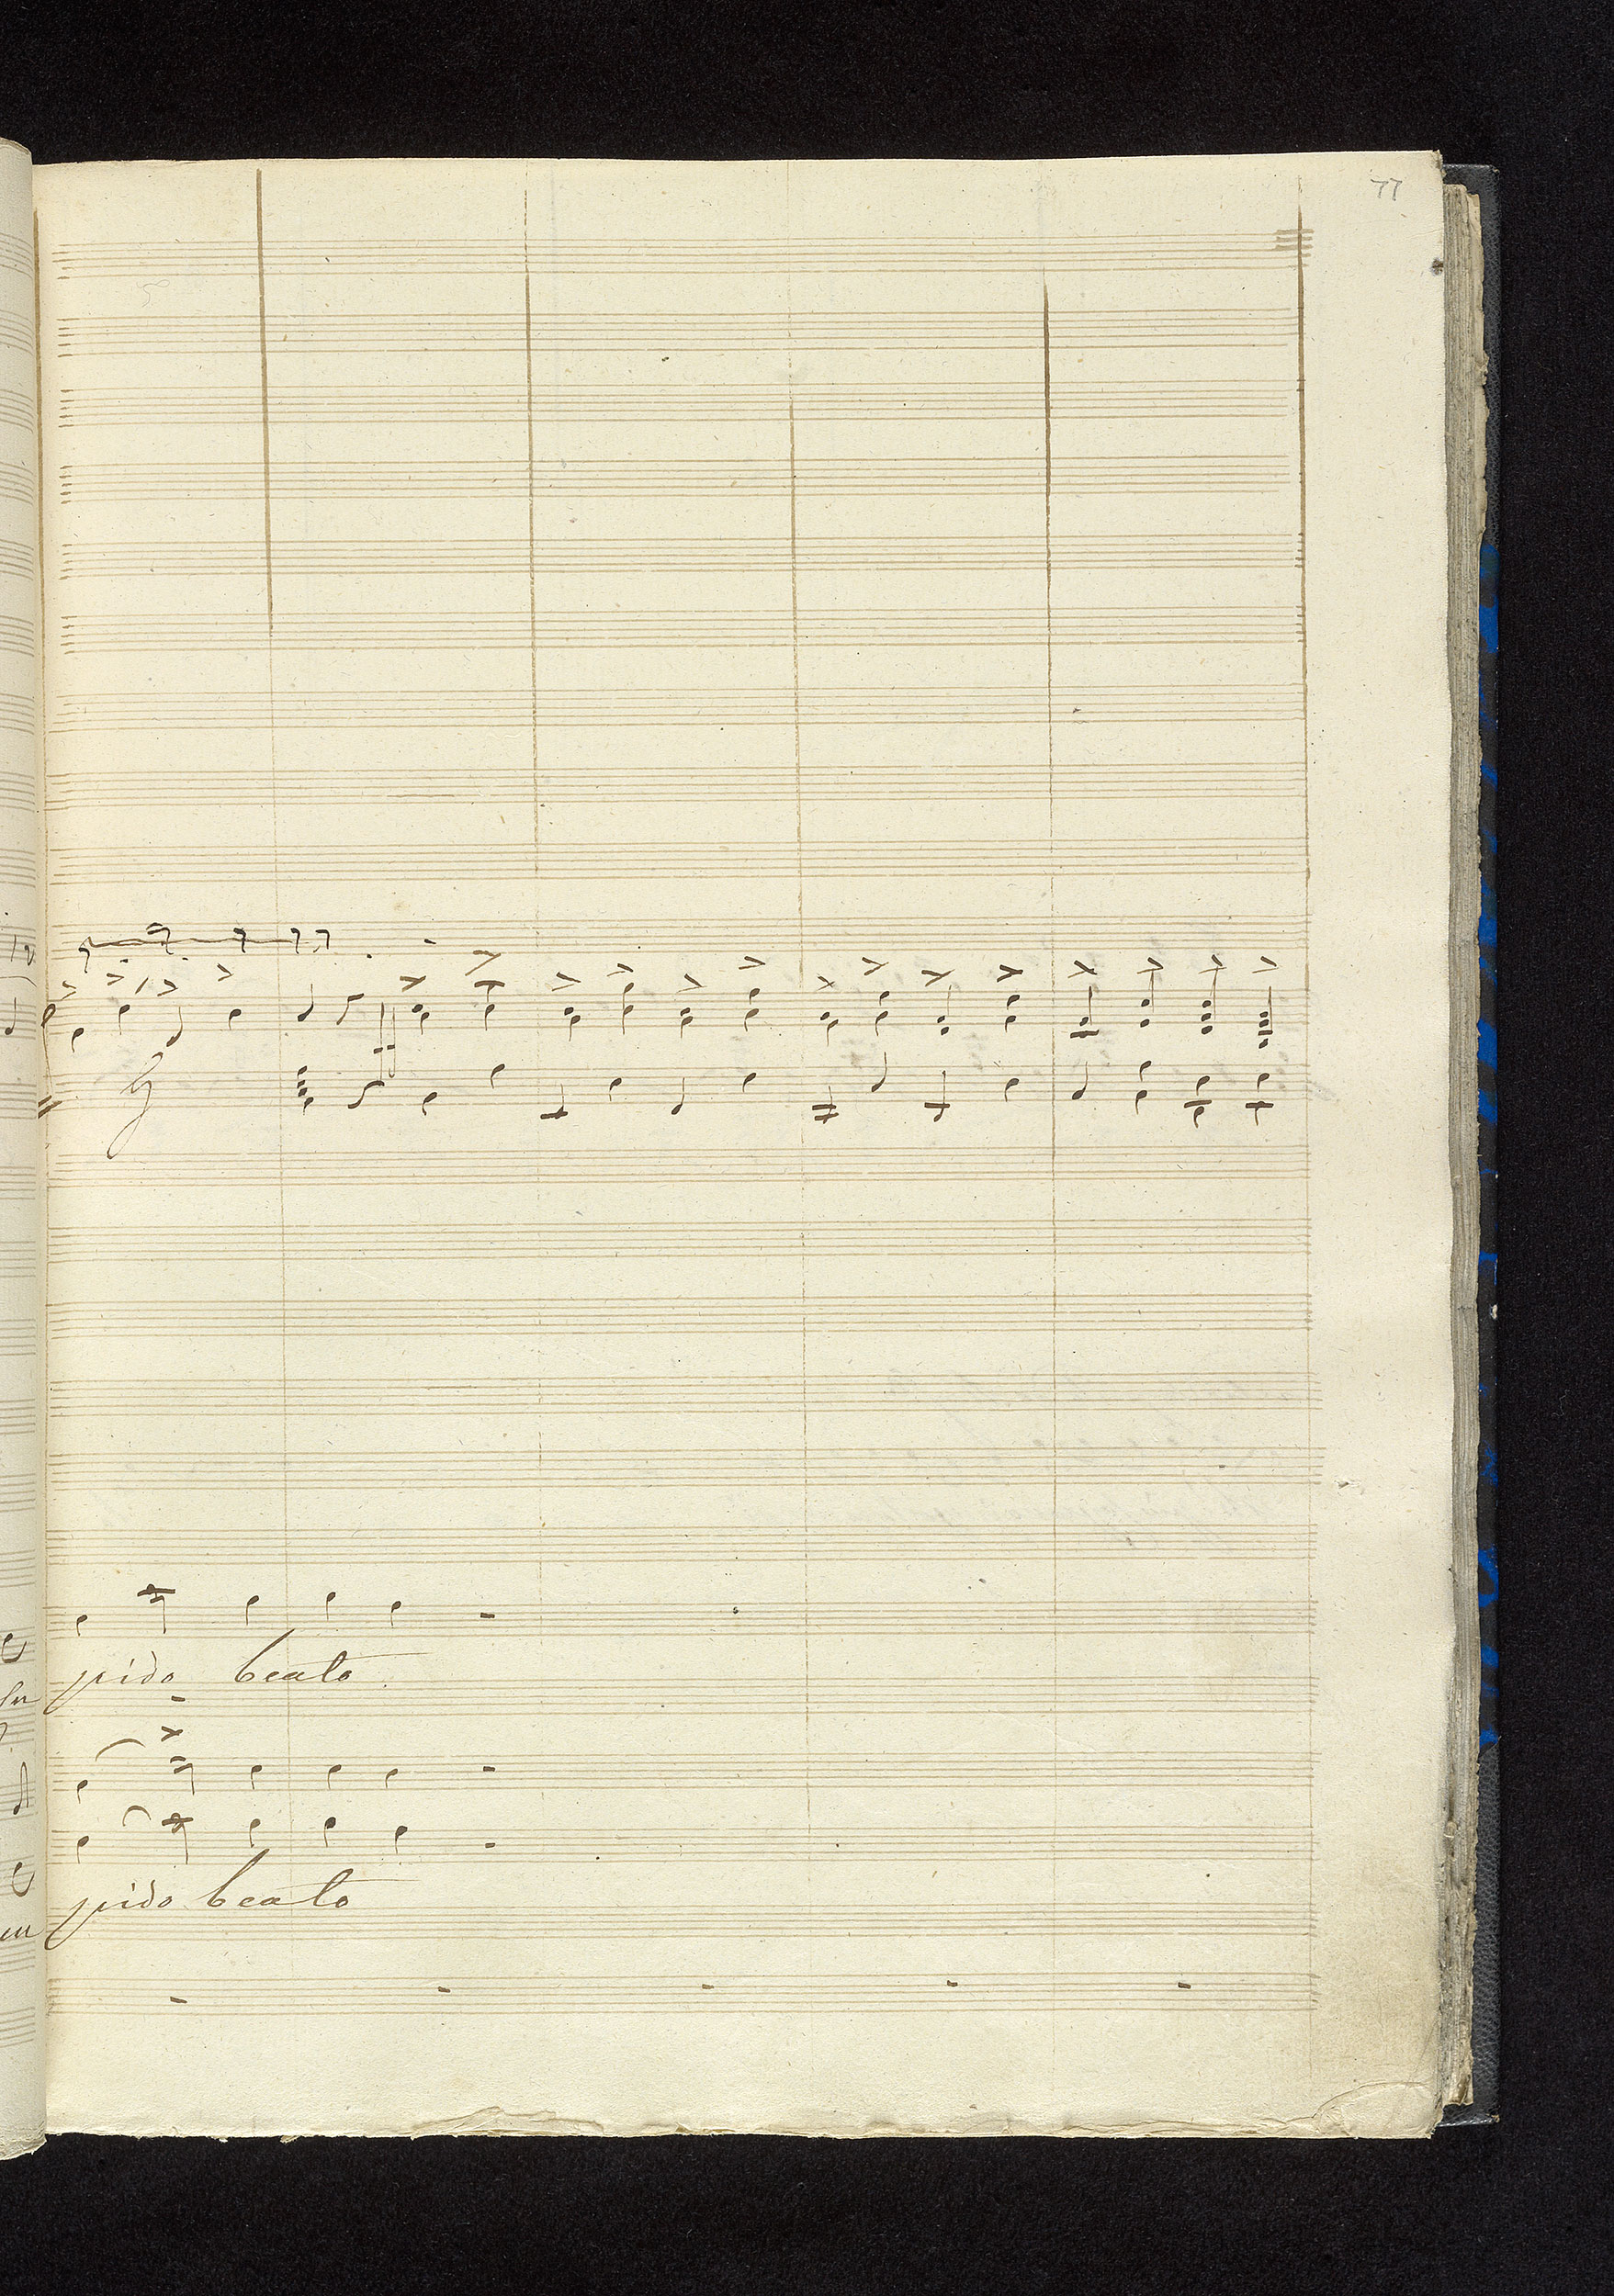 77
pido beato
pido beato